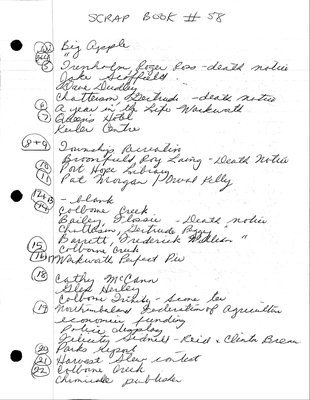 SCRAP BOOK # 58
Big Apple
5 Trenholm Roger Ross - death notice
Jake Scoffield
Dave Dudley
Chatterson, Gertrude - death notice
6 A year in the Life Warkworth
7 Queen's Hotel
Keeler Centre
8 + 9 Township Recreation
Broomfield, Roy Laing - Death Notice
10 Port Hope Library
11 Pat Morgan / Orval Kelly
- blank
Colborne Creek
Bailey, Flossie - Death notice
Chatterson, Gertrude Peggy "
Barrett, Frederick William "
15 Colborne Creek
16 Warkworth Perfect Pie
18 Cathy McCann
Glen Herley
Colborne Trinity - Same
19 Northumberland Federation of Agriculture
economic funding
Police display
Felicity Sidnell - Reid + Clinta Brean
20 Parks report
21 Harvest Stew contest
22 Colborne Creek
chemicals